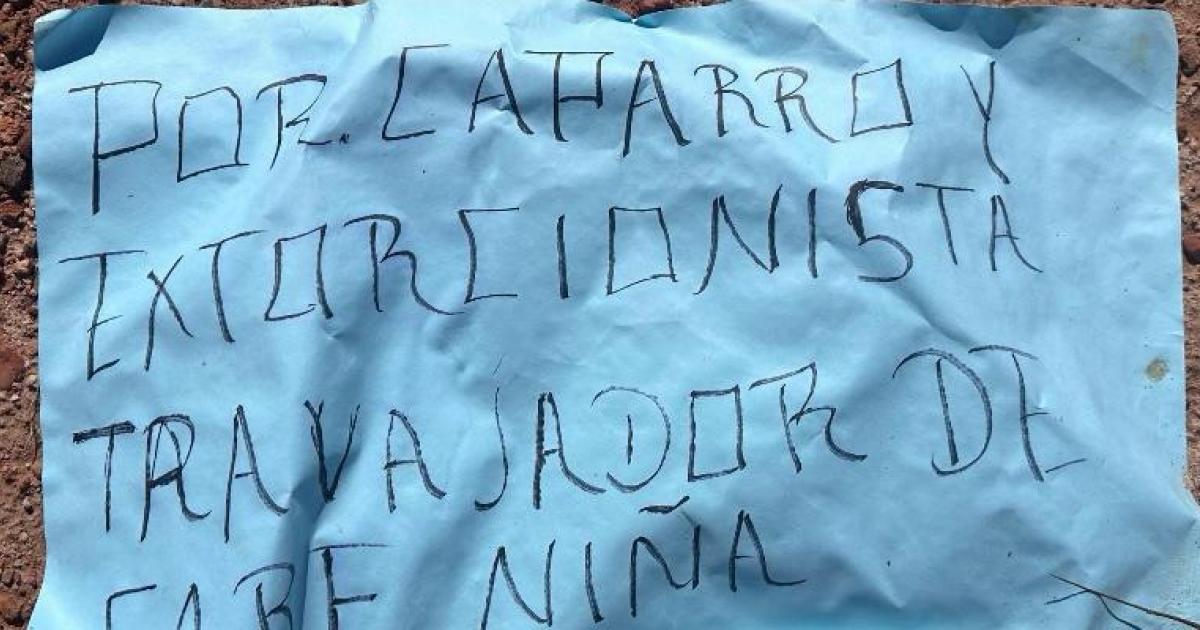 POR. CAPARRO Y
EXTORCIONISTA
TRAVAJADOR DE
CARE NIÑA